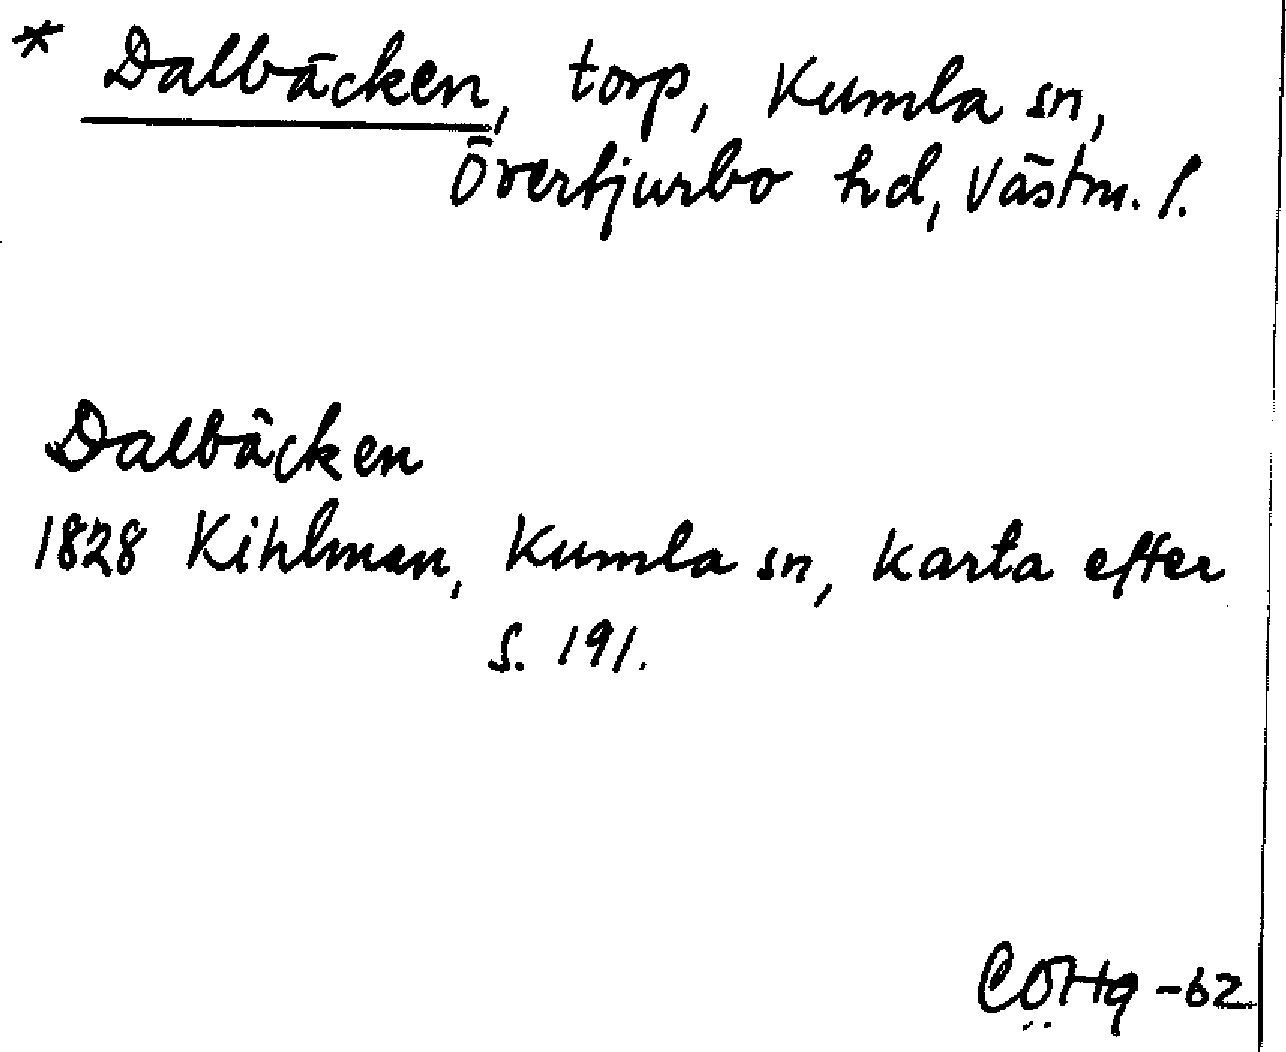 * Dalbäcken, torp, Kumla sn,
Övertjurbo hd, Västm. l.
Dalbäcken
1828 Kihlman, Kumla sn, karta efter
s. 191.
CÖHq -62